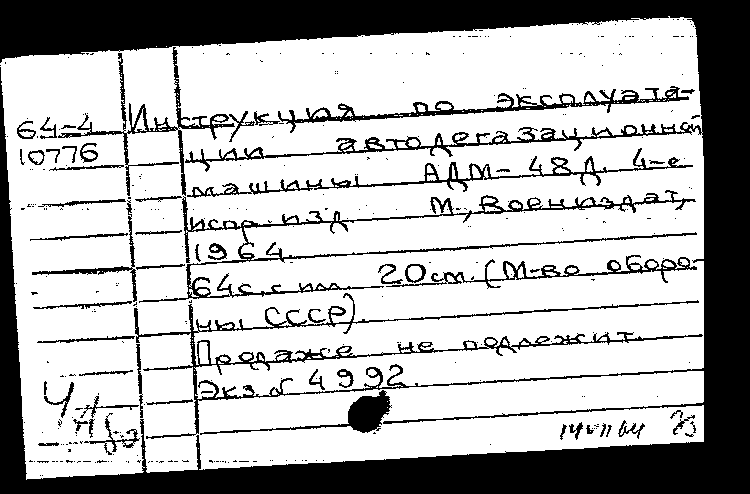 64-4 Инструкция по эксплуата-
10776 ции автодегазационной
машины АДМ-48Д. 4-е
испр. изд. М., Воениздат,
1964.
64 с. с илл. 20 см. (М-во оборо-
ны СССР).
Продаже не подлежит.
Экз. № 4992.